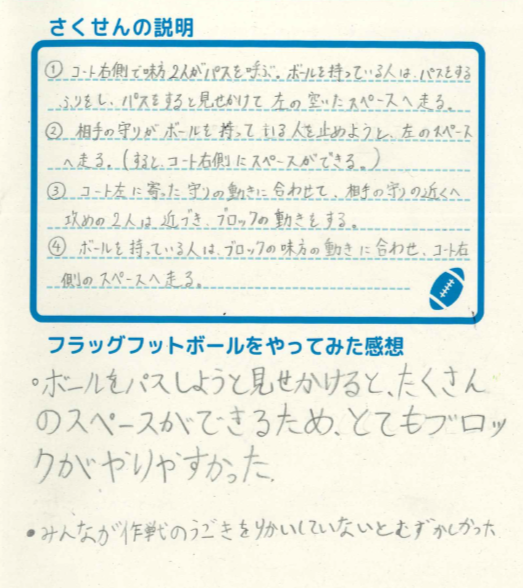 さくせんの説明
① コート右側で味方2人がパスを呼ぶ。ボールを持っている人は、パスをする
ふりをし、パスをすると見せかけて左の空いたスペースへ走る。
② 相手の守りがボールを持っている人を止めようと、左のスペース
へ走る。(すると、コート右側にスペースができる。)
③ コート左に寄った守りの動きに合わせて、相手の守りの近くへ
攻めの2人は近づき、ブロックの動きをする。
④ ボールを持っている人は、ブロックの味方の動きに合わせ、コート右
側のスペースへ走る。
フラッグフットボールをやってみた感想
・ボールをパスしようと見せかけると、たくさん
のスペースができるため、とてもブロッ
クがやりやすかった。
・みんなが作戦のうごきをりかいしていないとむずかしかった